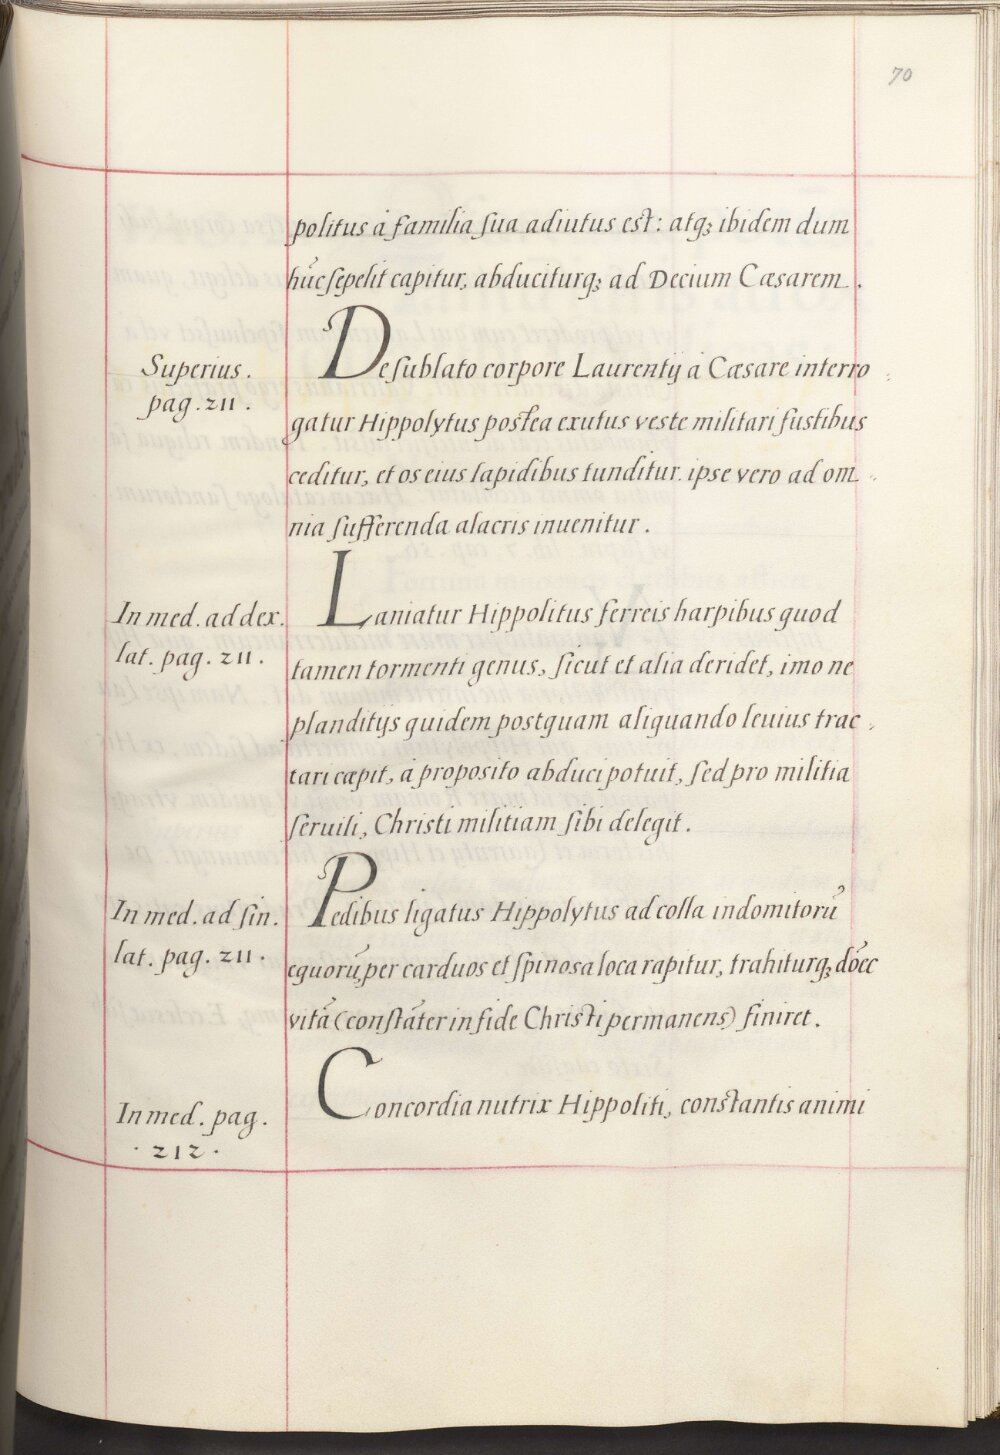 70
politus à familia ſua adiutus eſt: atq; ibidem dum
hūc ſepelit capitur, abduciturq; ad Decium Cæsarem.
Superius.
pag. 211.
De ſublato corpore Laurentij à Cæsare interro
gatur Hippolytus poſtea exutus veste militari fustibus
ceditur, et os eius lapidibus tunditur. ipse vero ad om
nia ſufferenda alacris inuenitur.
In med. ad dex.
lat. pag. 211.
Laniatur Hippolitus ferreis harpibus quod
tamen tormenti genus, ſicut et alia deridet, imo ne
planditijs quidem postquam aliquando leuius trac
tari cæpit, à proposito abduci potuit, ſed pro militia
ſeruili, Christi militiam ſibi delegit.
In med. ad ſin.
lat. pag. 211.
Pedibus ligatus Hippolytus ad colla indomitorū
equorū, per carduos et ſpinosa loca rapitur, trahiturq; dōec
vitā (conſtāter in fide Chriſti permanens) finiret.
In med. pag.
. 212 .
Concordia nutrix Hippoliti, conſtantis animi